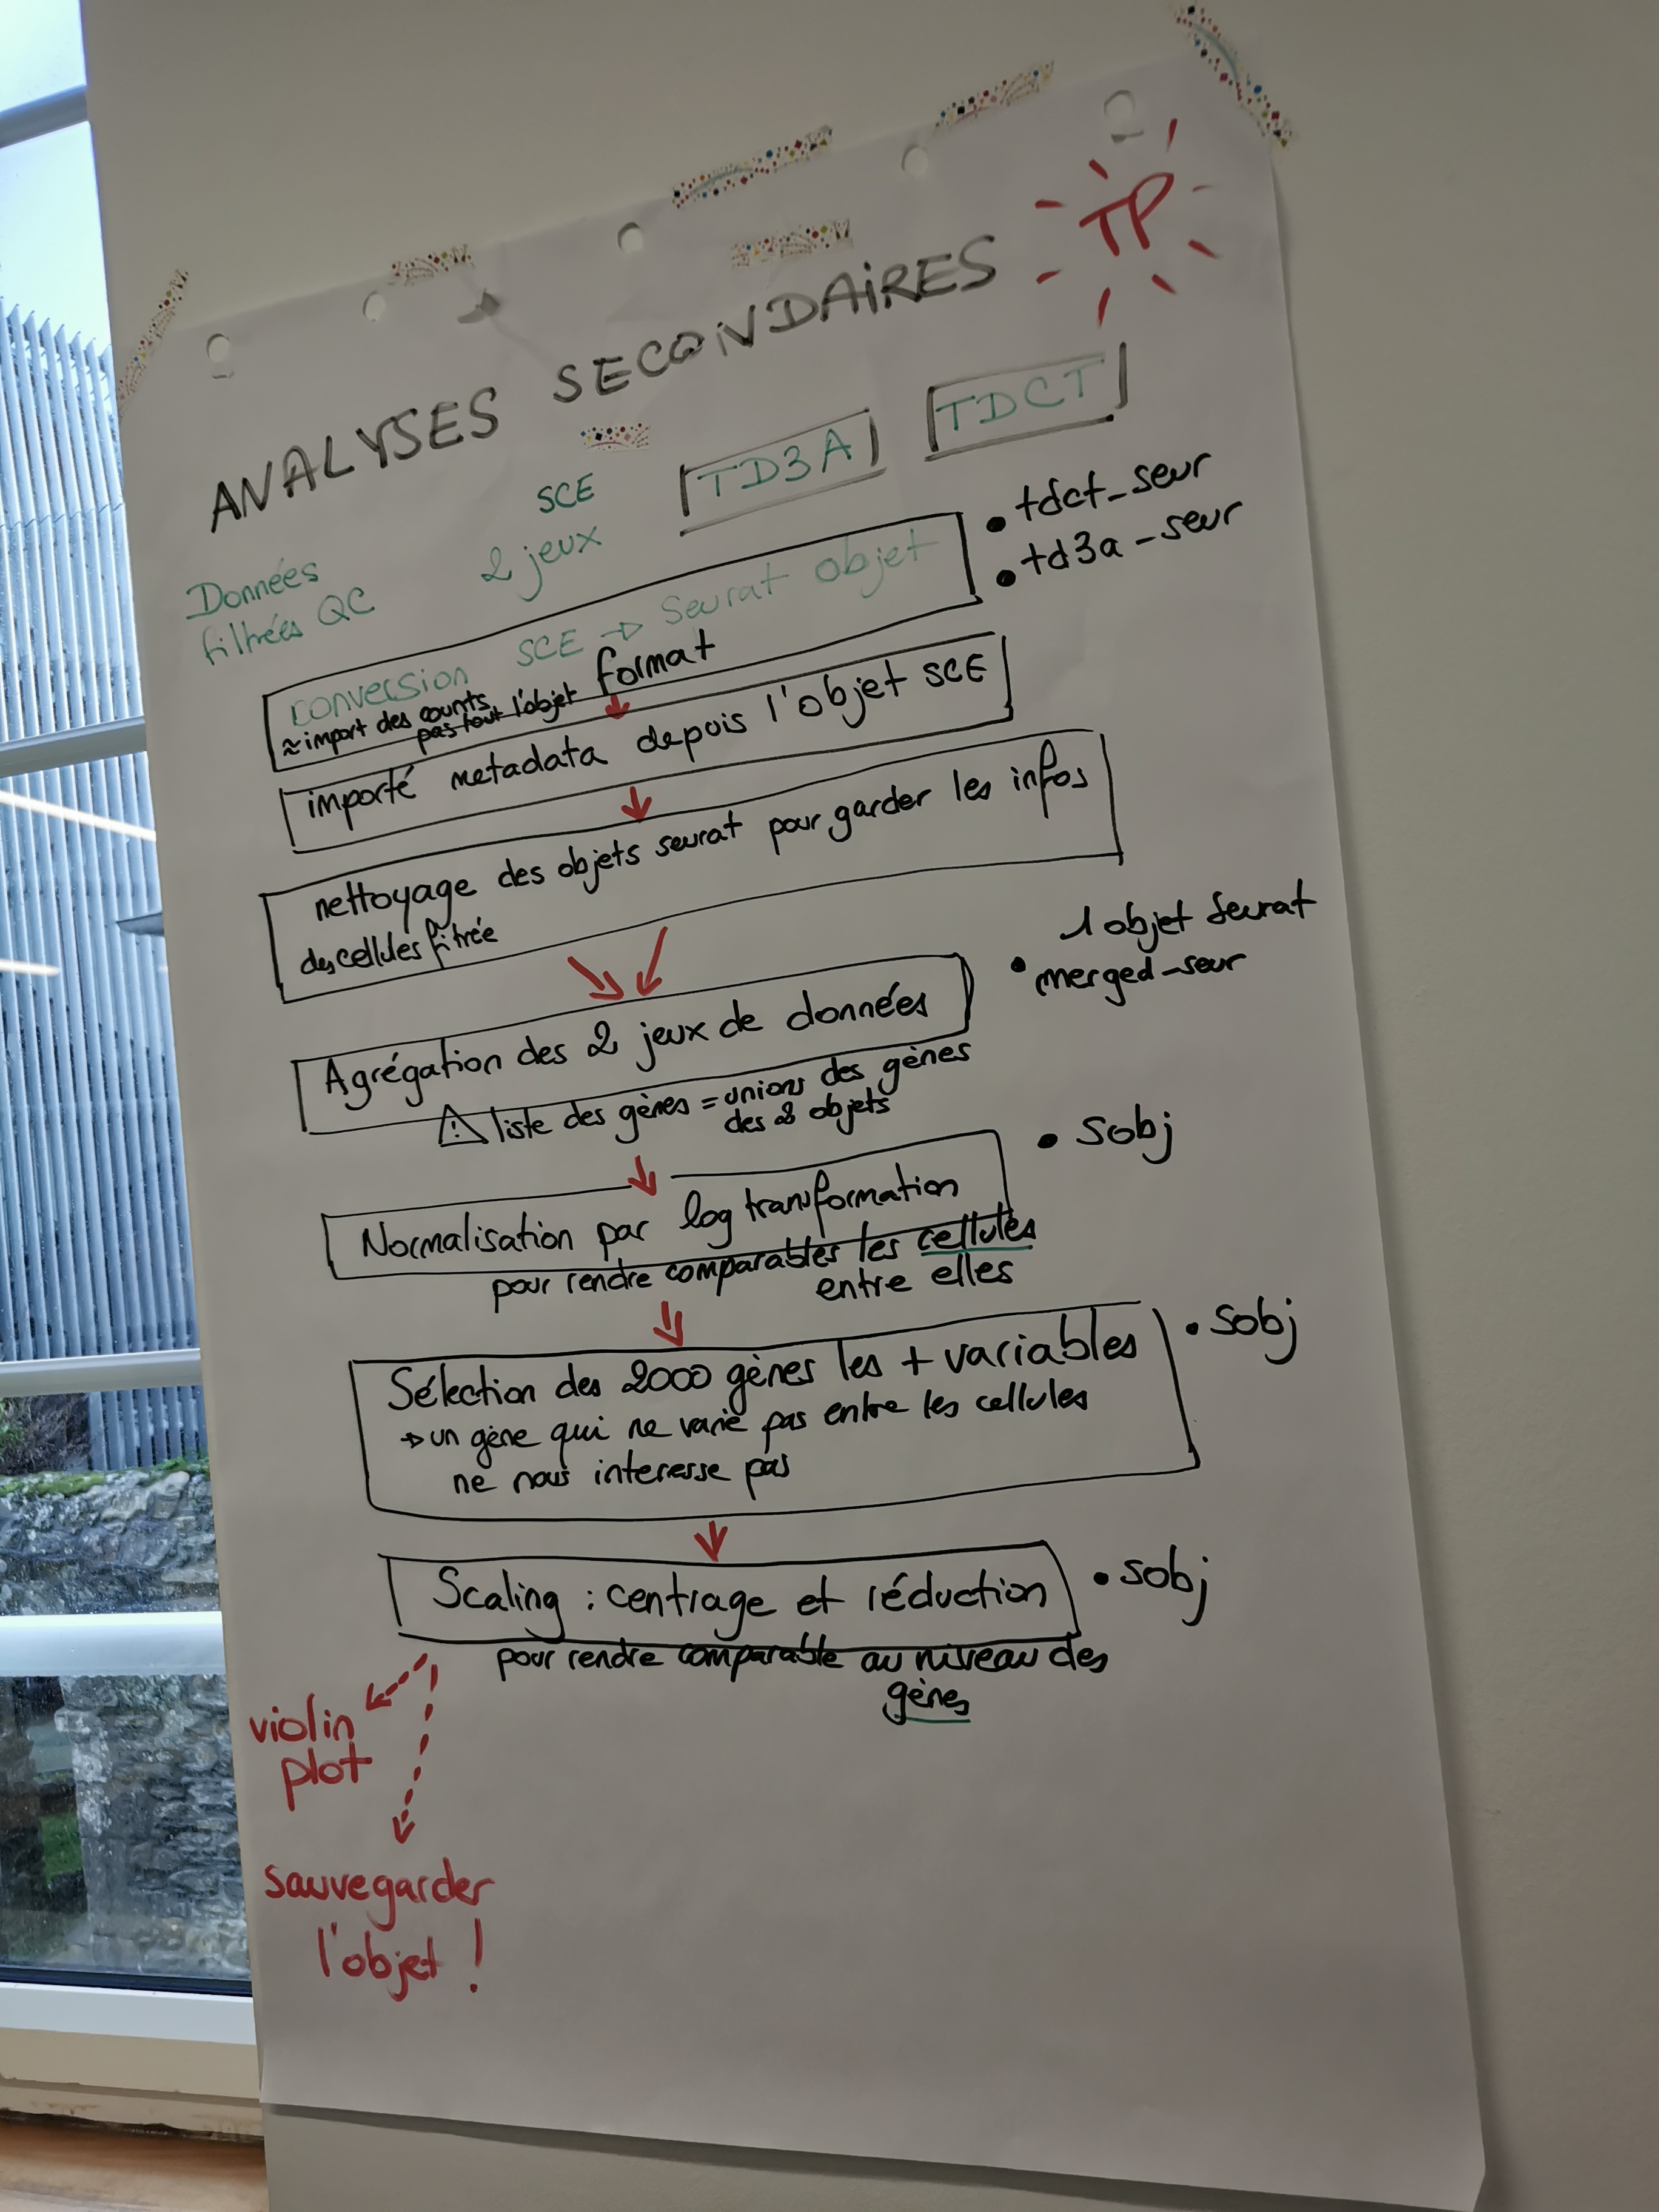 TP
ANALYSES SECONDAIRES
Données
filtrées QC
SCE
2 jeux
TD3A
TDCT
conversion SCE → Seurat objet
format
• tdct_seur
• td3a_seur
≈ import des counts
pas tout l'objet
importé metadata depuis l'objet SCE
nettoyage des objets seurat pour garder les infos
des cellules filtrée
Agrégation des 2 jeux de données
1 objet seurat
• merged_seur
⚠ liste des gènes = unions des gènes
des 2 objets
Normalisation par log transformation
• sobj
pour rendre comparables les cellules
entre elles
Sélection des 2000 gènes les + variables
• sobj
→ un gène qui ne varie pas entre les cellules
ne nous interesse pas
Scaling : centrage et réduction
• sobj
pour rendre comparable au niveau des
gènes
violin
plot
sauvegarder
l'objet !